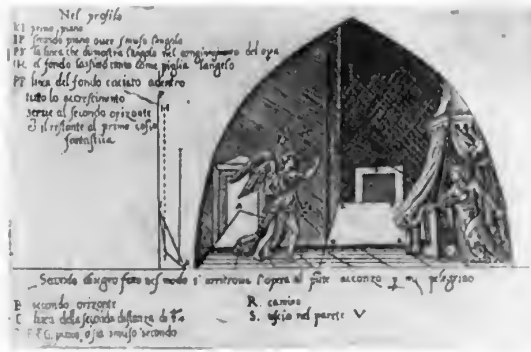 Nel profilo
KI primo piano
IP secondo piano over smuso l'angolo
PX la linea che dimostra l'angolo nel congiungimento del opa
IH el fondo lassiato tanto come piglia l'angelo
PF linea del fondo caciato adentro
tutto lo accrescimento
serve al secondo orizonte
& il restante al primo
fantastica
M
Secondo disegno fato nel modo s'aritrova l'opera al pnte acconzo p m pelegrino
B secondo orizonte
C linea della seconda distanza di
EFG piano, o sia smuso secondo
R. camino
S. uscio nel parete V